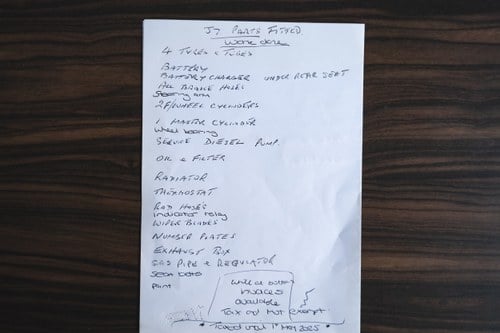 J7 PARTS FITTED
Work done
4 TYRES & TUBES
BATTERY
BATTERY CHARGER UNDER REAR SEAT
ALL BRAKE HOSES
Steering arm
2 F/WHEEL CYLINDERS
1 MASTER CYLINDER
wheel bearing
SERVICE DIESEL PUMP
OIL & FILTER
RADIATOR
THERMOSTAT
RAD HOSES
indicator relay
WIPER BLADES
NUMBER PLATES
EXHAUST BOX
GAS PIPE & REGULATOR
Seat belts
Paint
invoices
available
Tax and mot exempt
Taxed until 1st MAY 2025